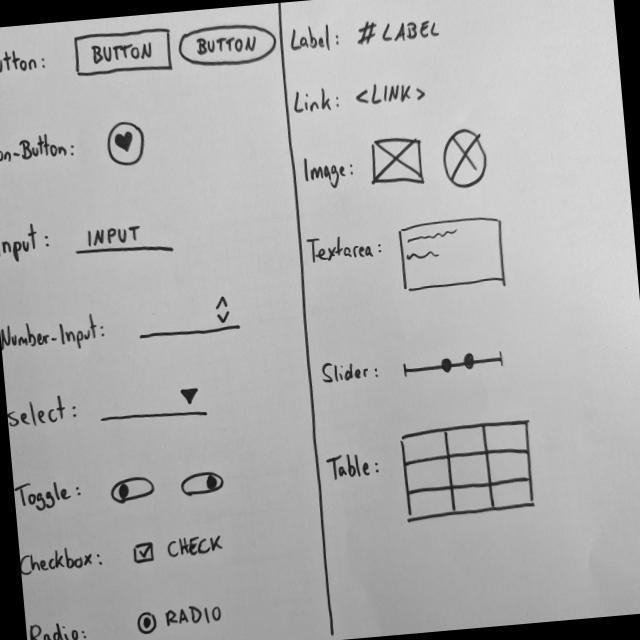 utton: BUTTON BUTTON
on-Button:
nput: INPUT
Number-Input:
Select:
Toggle:
Checkbox: CHECK
Radio: RADIO
Label: # LABEL
Link: <LINK>
Image:
Textarea:
Slider:
Table: